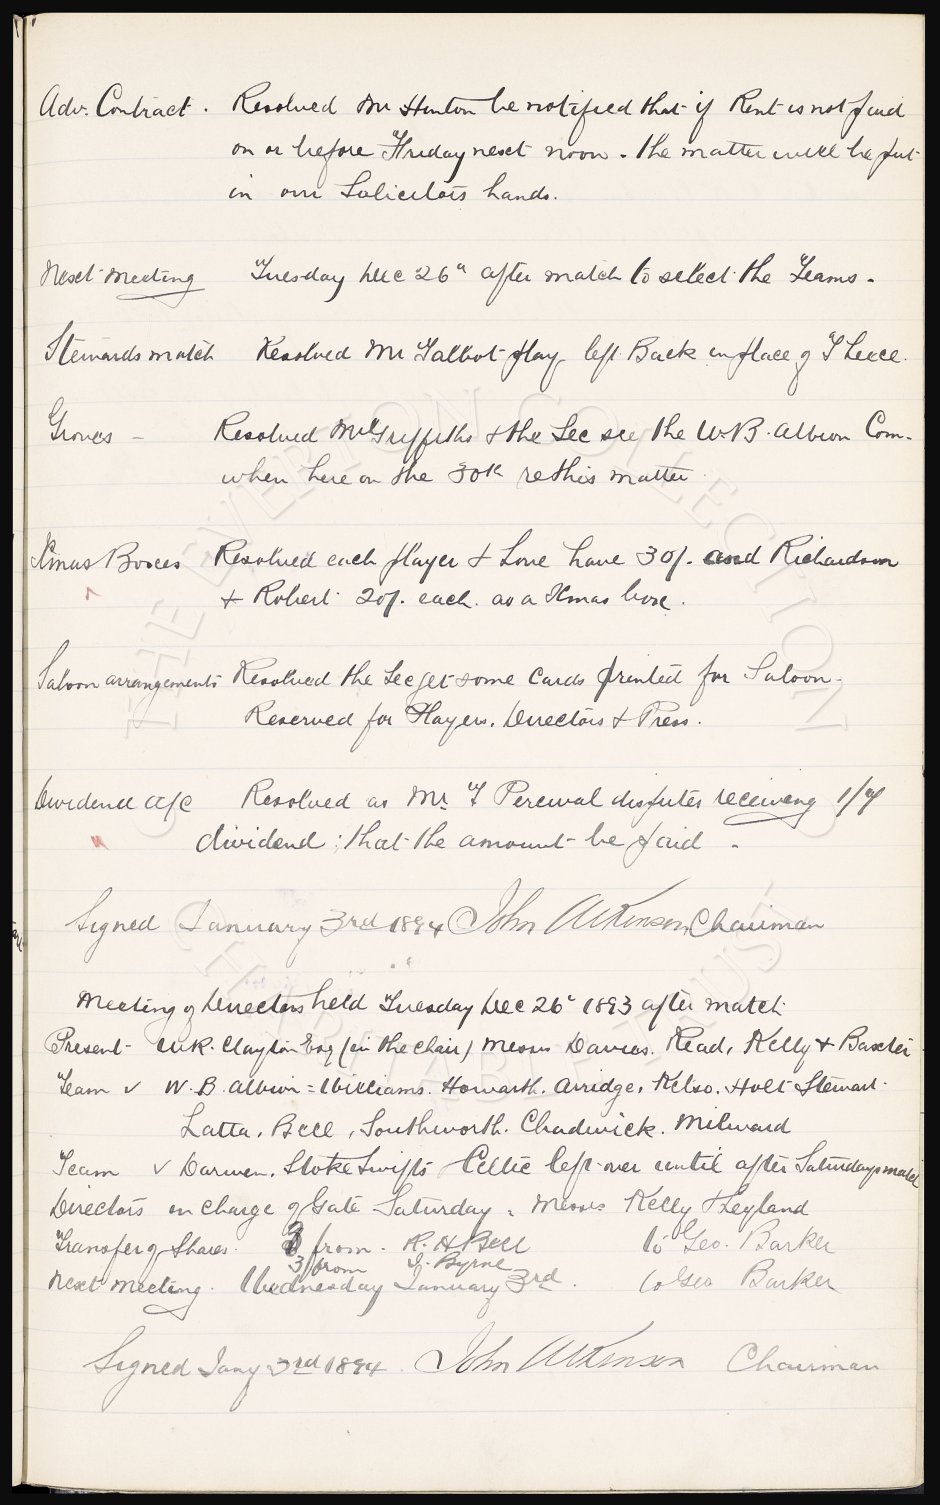 Adv. Contract. Resolved Mr Hinton be notified that if Rent is not paid
on or before Friday next noon. the matter will be put
in our Solicitors hands.
Next Meeting Tuesday Dec 26th after match to select the Teams.
Stewards match Resolved Mr Talbot play left Back in place of T Leece.
Groves - Resolved Mr Griffiths & the Sec see the W.B. Albion Com.
when here on the 30th re this matter.
Xmas Boxes Resolved each player & Lone have 30/. and Richardson
& Robert 20/. each as a Xmas box.
Saloon arrangements Resolved the Sec get some Cards printed for Saloon.
Reserved for Players, Directors & Press.
Dividend a/c Resolved as Mr. F Percival disputes receiving 1/7
dividend; that the amount be paid.
Signed January 3rd 1894 John Atkinson, Chairman
Meeting of Directors held Tuesday Dec 26th 1893 after match
Present - W.R. Clayton Esq (in the chair) Messrs Davies, Read, Kelly & Baxter
Team v W.B. Albion = Williams. Howarth. Arridge, Kelso. Holt Stewart.
Latta, Bell, Southworth. Chadwick. Milward
Team v Darwen. Stoke Swifts Celtic left over until after Saturdays match
Directors in charge of Gate Saturday = Messrs Kelly & Leyland
Transfer of Shares. 3 from R. H Bell to Geo. Barker
3 from Byrne to Geo Barker
Next Meeting. Wednesday January 3rd.
Signed Jany 3rd 1894. John Atkinson Chairman
THE EVERTON COLLECTION
CHARITABLE TRUST